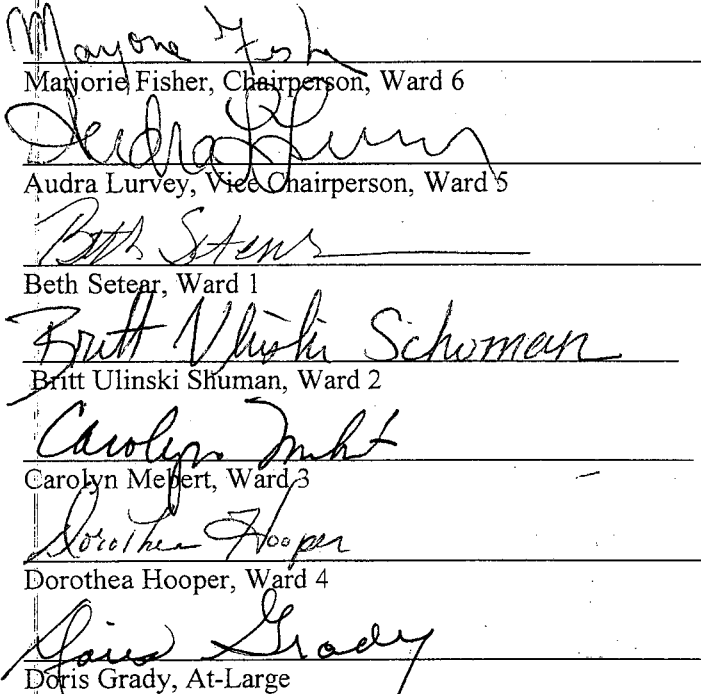 Marjorie Fisher
Marjorie Fisher, Chairperson, Ward 6
Audra Lurvey
Audra Lurvey, Vice Chairperson, Ward 5
Beth Setear
Beth Setear, Ward 1
Britt Ulinski Schuman
Britt Ulinski Shuman, Ward 2
Carolyn Mebert
Carolyn Mebert, Ward 3
Dorothea Hooper
Dorothea Hooper, Ward 4
Doris Grady
Doris Grady, At-Large